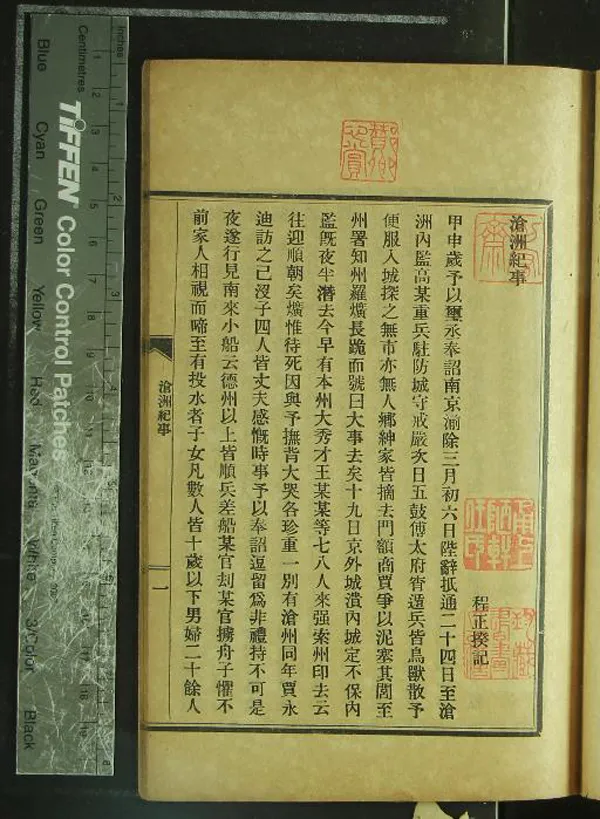 滄洲紀事
程正揆記
甲申歲予以璽丞奉詔南京渝除三月初六日陛辭抵通二十四日至滄
洲內監高某重兵駐防城守戒嚴次日五鼓傅太府宵遁兵皆鳥獸散予
便服入城探之無市亦無人鄉紳家皆摘去門額商賈爭以泥塞其閭至
州署知州羅爌長跪而號曰大事去矣十九日京外城潰內城定不保內
監既夜半潛去今早有本州大秀才王某某等七八人來强索州印去云
往迎順朝矣爌惟待死因與予撫背大哭各珍重一別有滄州同年賈永
迪訪之已沒子四人皆丈夫感慨時事予以奉詔逗留爲非禮持不可是
夜遂行見南來小船云德州以上皆順兵差船某官刦某官擄舟子懼不
前家人相視而啼至有投水者子女凡數人皆十歲以下男婦二十餘人
滄洲紀事
一
Inches
Centimetres
TIFFEN Color Control Patches
Blue
Cyan
Green
Yellow
Red
Magenta
White
3/Color
Black